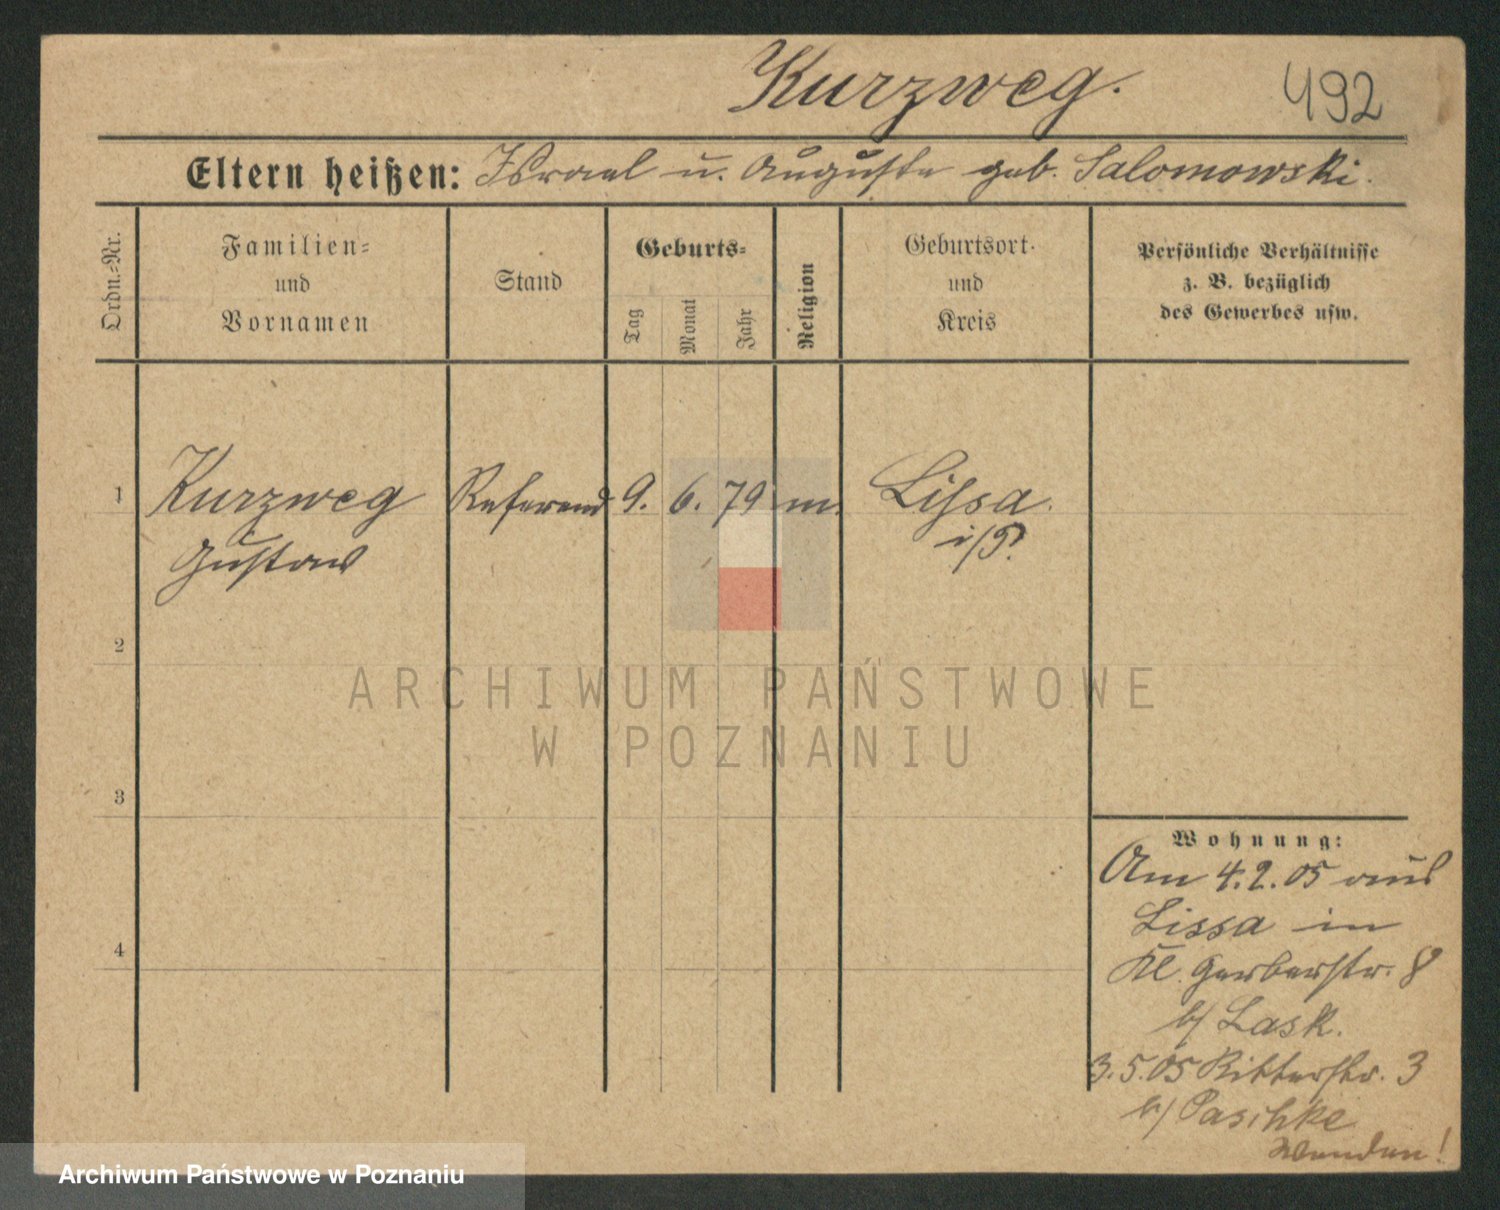 Kurzweg.
492
Eltern heißen: Israel u. Auguste geb. Salomowski.
Ordn.-Nr.
Familien-
und
Vornamen
Stand
Geburts-
Tag
Monat
Jahr
Religion
Geburtsort
und
Kreis
Persönliche Verhältnisse
z. B. bezüglich
des Gewerbes usw.
1 Kurzweg Referend 9. 6. 79 m. Lissa.
Gustav i/P.
2
3
4
ARCHIWUM PAŃSTWOWE
W POZNANIU
Wohnung:
Am 4.2.05 aus
Lissa in
Kl. Gerberstr. 8
b/ Lask.
3.5.05 Ritterstr. 3
b/ Paschke
Wenden!
Archiwum Państwowe w Poznaniu